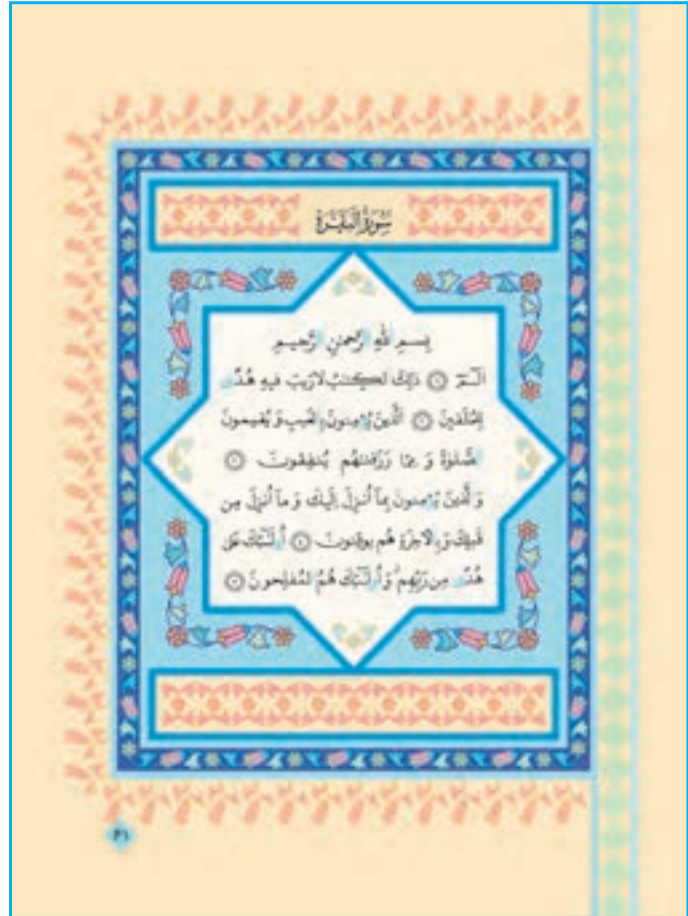 سُورَةُ الْبَقَرَةِ
بِسمِ اللهِ الرَّحمٰنِ الرَّحیمِ
الٓـمٓ ۝۱ ذٰلِکَ الکِتٰبُ لا رَیبَ فیهِ هُدًی
لِلمُتَّقینَ ۝۲ اَلَّذینَ یُؤمِنونَ بِالغَیبِ وَ یُقیمونَ
الصَّلوٰةَ وَ مِمّا رَزَقنٰهُم یُنفِقونَ ۝۳
وَ الَّذینَ یُؤمِنونَ بِمآ اُنزِلَ اِلَیکَ وَ مآ اُنزِلَ مِن
قَبلِکَ وَ بِالآخِرَةِ هُم یوقِنونَ ۝۴ اُولٰٓئِکَ عَلیٰ
هُدًی مِن رَبِّهِم وَ اُولٰٓئِکَ هُمُ المُفلِحونَ ۝۵
۴۱